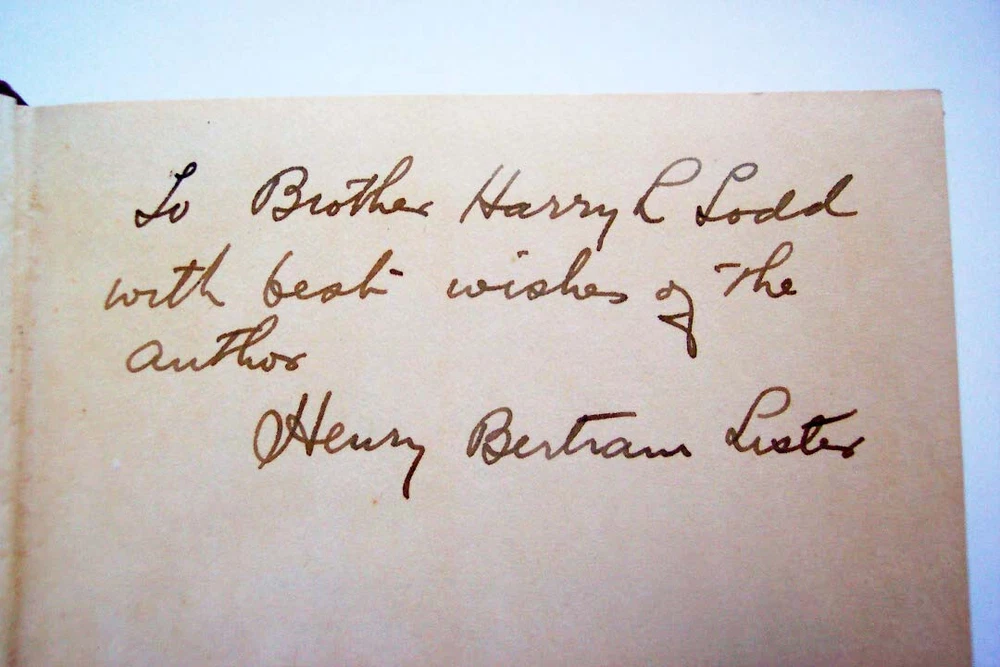 To Brother Harry L Todd
with best wishes of the
author
Henry Bertram Lister